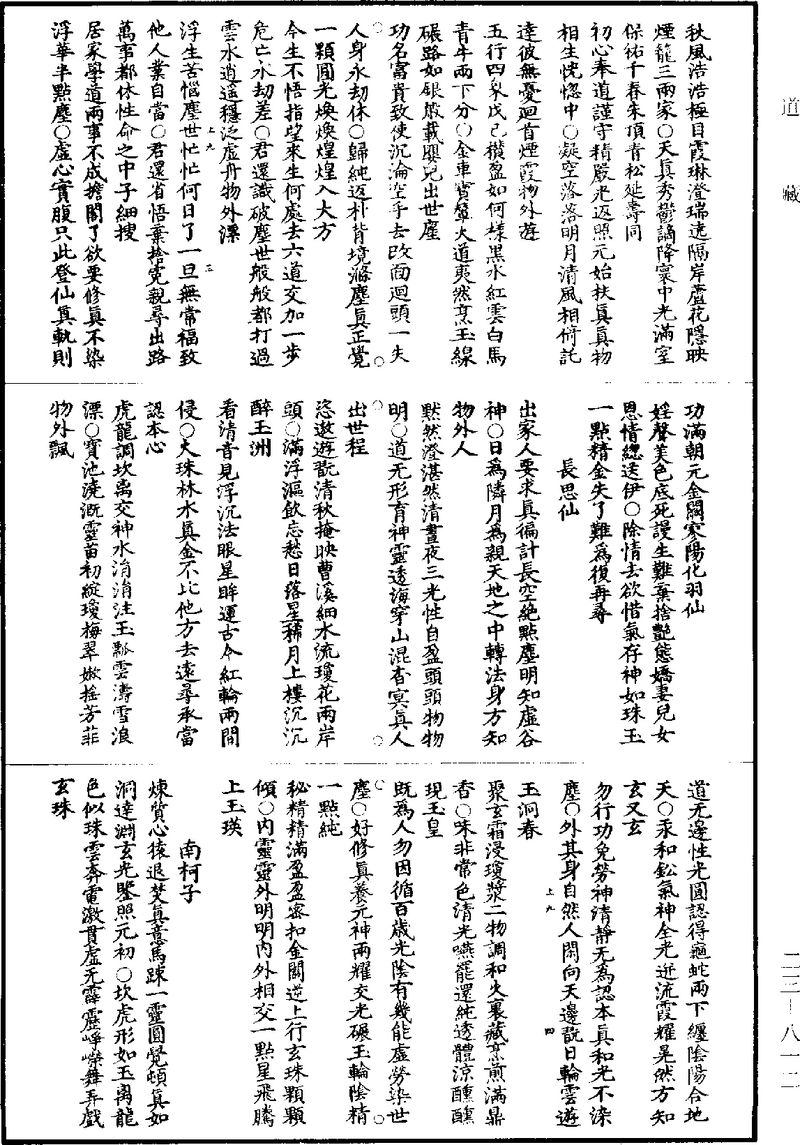 道藏
秋風浩浩極目霞琳澄瑞遠隔岸蘆花隱映
煙籠三兩家○天真秀鬱謫降寰中光滿室
保祐千春朱頂青松延壽同
初心奉道謹守精嚴光返照元始扶真真物
相生恍惚中○凝空落落明月清風相倚託
達彼無憂迴首煙霞物外遊
五行四象戊己攢盈如何樣黑水紅雲白馬
青牛兩下分○金車寶輦大道夷然烹玉線
碾路如銀般載嬰兒出世塵
功名富貴致使沉淪空手去改面迴頭一失
人身永劫休○歸純返朴背境滌塵真正覺
一顆圓光煥煥煌煌入大方
今生不悟指望來生何處去六道交加一步
危亡永劫差○君還識破塵世般般都打過
雲水逍遙穩泛虛舟物外漂
浮生苦惱塵世忙忙何日了一旦無常福致
他人業自當○君還省悟棄捨冤親尋出路
萬事都休性命之中子細搜
居家學道兩事不成擔閣了欲要修真不染
浮華半點塵○虛心實腹只此登仙真軌則
上九
三
功滿朝元金闕寥陽化羽仙
婬聲美色底死謾生難棄捨艷態嬌妻兒女
恩情總送伊○除情去欲惜氣存神如珠玉
一點精金失了難為復再尋
長思仙
出家人要求真徧計長空絕點塵明知虛谷
神○日為隣月為親天地之中轉法身方知
物外人
默然澄湛然清晝夜三光性自盈頭頭物物
明○道无形育神靈透海穿山混杳冥真人
出世程
恣遨遊翫清秋掩映曹溪細水流瓊花兩岸
頭○滿浮漚飲忘愁日落星稀月上樓沉沉
醉玉洲
看清音見浮沉法眼星眸運古今紅輪兩間
侵○大珠林水真金不比他方去遠尋承當
認本心
虎龍調坎离交神水涓涓注玉瓢雲濤雪浪
漂○寶池澆溉靈苗初綻瓊梅翠嫩搖芳菲
物外飄
道无邊性光圓認得龜蛇兩下纏陰陽合地
天○汞和鈆氣神全光迸流霞耀晃然方知
玄又玄
勿行功免勞神清靜无為認本真和光不染
塵○外其身自然人閑向天邊翫日輪雲遊
玉洞春
聚玄霜浸瓊漿二物調和火裏藏烹煎滿鼎
香○味非常色清光嚥罷還純透體涼醺醺
現玉皇
既為人勿因循百歲光陰有幾能虛勞染世
塵○好修真養元神兩耀交光碾玉輪陰精
一點純
秘精精滿盈盈密扣金關逆上行玄珠顆顆
傾○內靈靈外明明內外相交一點星飛騰
上玉瑛
南柯子
煉質心猿退焚真意馬踈一靈圓覺頓真如
洞達淵玄光鑒照元初○坎虎形如玉离龍
色似珠雲奔電激貫虛无霹靂崢嶸舞弄戲
玄珠
上九
四
二三－八一二